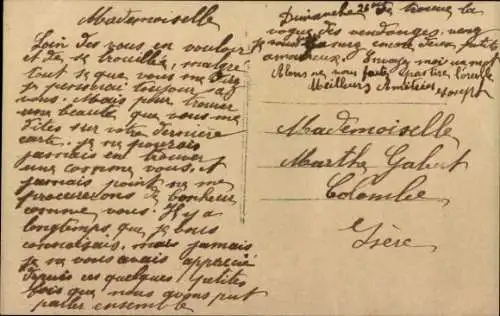 Mademoiselle
Loin des vous en vouloir
et de se trouiller, malgré
tout se que vous me dire
je penserai toujour a
vous. Mais pour trouver
une beauté que vous me
dites sur votre dernière
carte. je ne pourais
jamais en trouver
une comme vous, et
jamais point ne me
procurerons de bonheur
comme vous. Il y a
longtemps que je vous
connaissais, mais jamais
je ne vous avais apprécié
depuis ces quelques petites
fois que nous avons put
parler ensemble
Dimanche 26 la
vogue des vendanges, venez
je vous assure encore petits
amoureux. Envoyez moi un mot
Alors ne vous faite pas tire l'oreille
Meilleurs Amitiées
Joseph
Mademoiselle
Marthe Gabert
Colombe
Isère